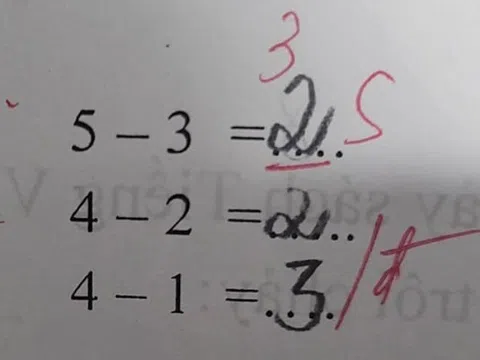 3
5 - 3 = 2 S
4 - 2 = 2
4 - 1 = 3 /đ